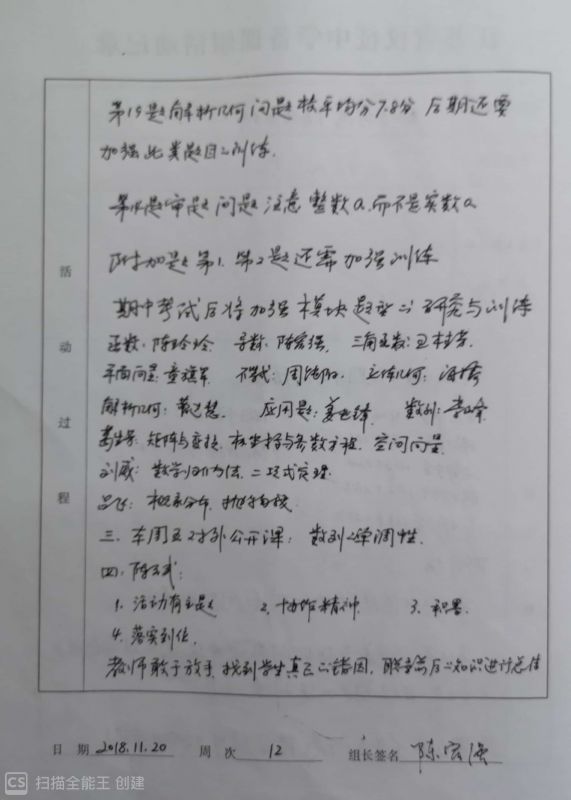 第19题解析几何问题校平均分7.8分 后期还要
加强此类题目之训练.
第18题审题问题 注意整数a,而不是实数a
附加题第1.第2题还需加强训练
期中考试后将加强模块题型之研究与训练
函数:陈玲玲 导数:陈宏强 三角函数:
平面向量: 不等式:周 立体几何:
解析几何: 应用题:姜 数列:李
矩阵与变换,极坐标与参数方程,空间向量
刘威:数学归纳法,二项式定理
吕 :概率分布,
三.本周五对外公开课: 数列之单调性.
四.陈 :
1.活动有主题 2.协作精神 3.积累.
4.落实到位.
教师敢于放手,找到学生真正之错因,联音篇后之知识进行总结
活
动
过
程
日 期 2018.11.20 周 次 12 组长签名 陈宏强
CS 扫描全能王 创建